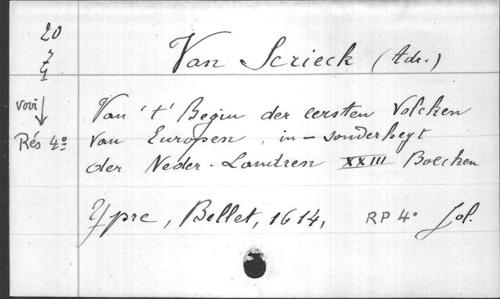 20
7
1
Van Scrieck (Adr.)
voir
Rés 4º
Van 't' Begin der eersten Volcken
van Europen, in - sonderheyt
der Neder-Landren XXIII Boecken
Ypre, Bellet, 1614, RP 4º fol.